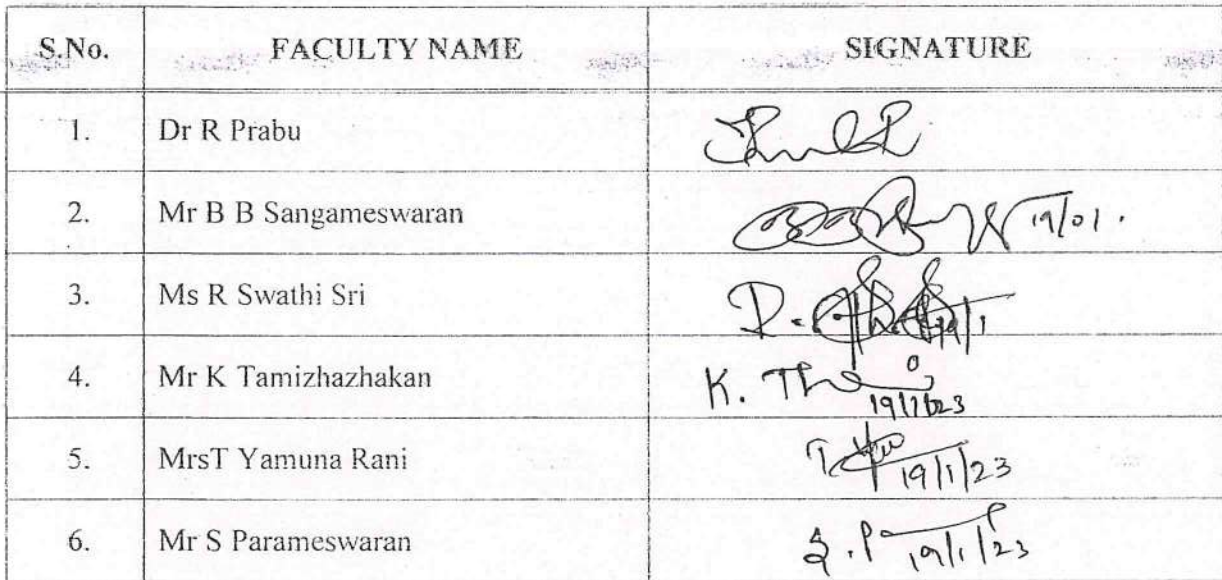 S.No. FACULTY NAME SIGNATURE
1. Dr R Prabu
2. Mr B B Sangameswaran 19/01.
3. Ms R Swathi Sri
4. Mr K Tamizhazhakan K. 19/1/23
5. MrsT Yamuna Rani 19/1/23
6. Mr S Parameswaran 19/1/23